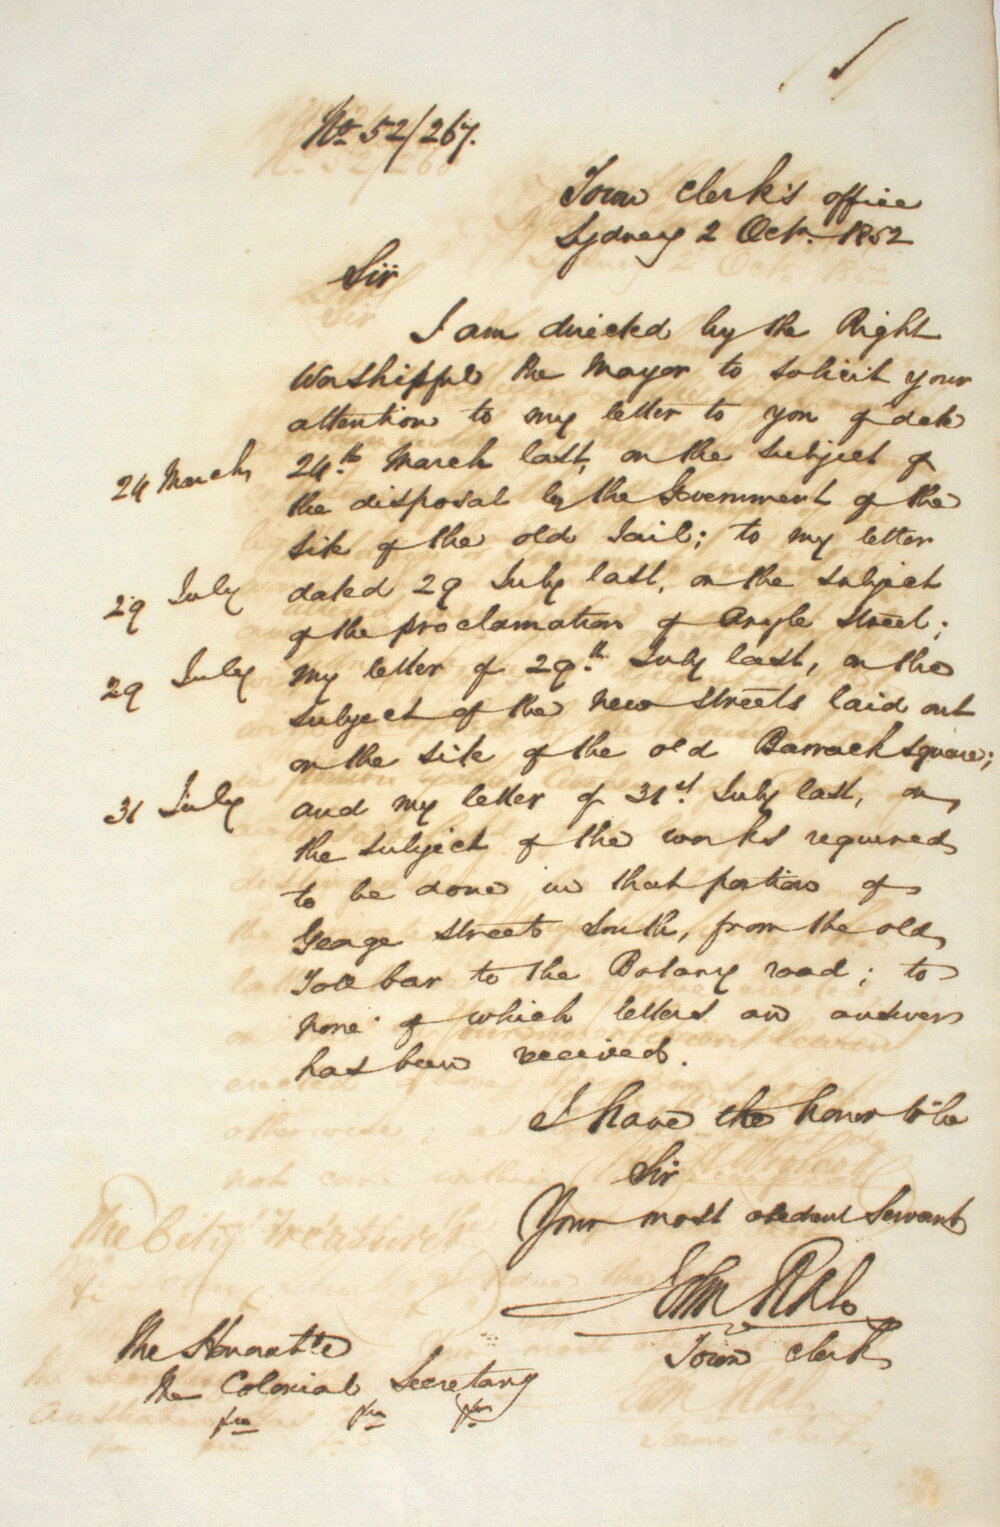 No. 52/267.
Town Clerk's office
Sydney 2 Octr. 1852
Sir
I am directed by the Right
Worshipful the Mayor to solicit your
attention to my letter to you of date
24 March
24th March last, on the subject of
the disposal by the Government of the
site of the old Jail; to my letter
29 July
dated 29 July last, on the subject
of the proclamation of Argyle Street;
29 July
my letter of 29th July last, on the
subject of the new streets laid out
on the site of the old Barrack square;
31 July
and my letter of 31st July last, on
the subject of the works required
to be done in that portion of
George Street South, from the old
Toll bar to the Botany road; to
none of which letters an answer
has been received.
I have the honor to be
Sir
Your most obedient Servant
John Rae
Town Clerk
The Honorable
The Colonial Secretary